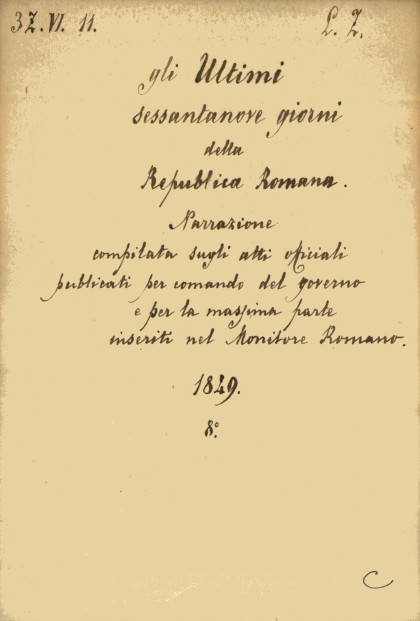 37. VI. 11. L. Z.
gli Ultimi
sessantanove giorni
della
Republica Romana.
Narrazione
compilata sugli atti officiali
publicati per comando del governo
e per la massima parte
inseriti nel Monitore Romano.
1849.
8°.
C